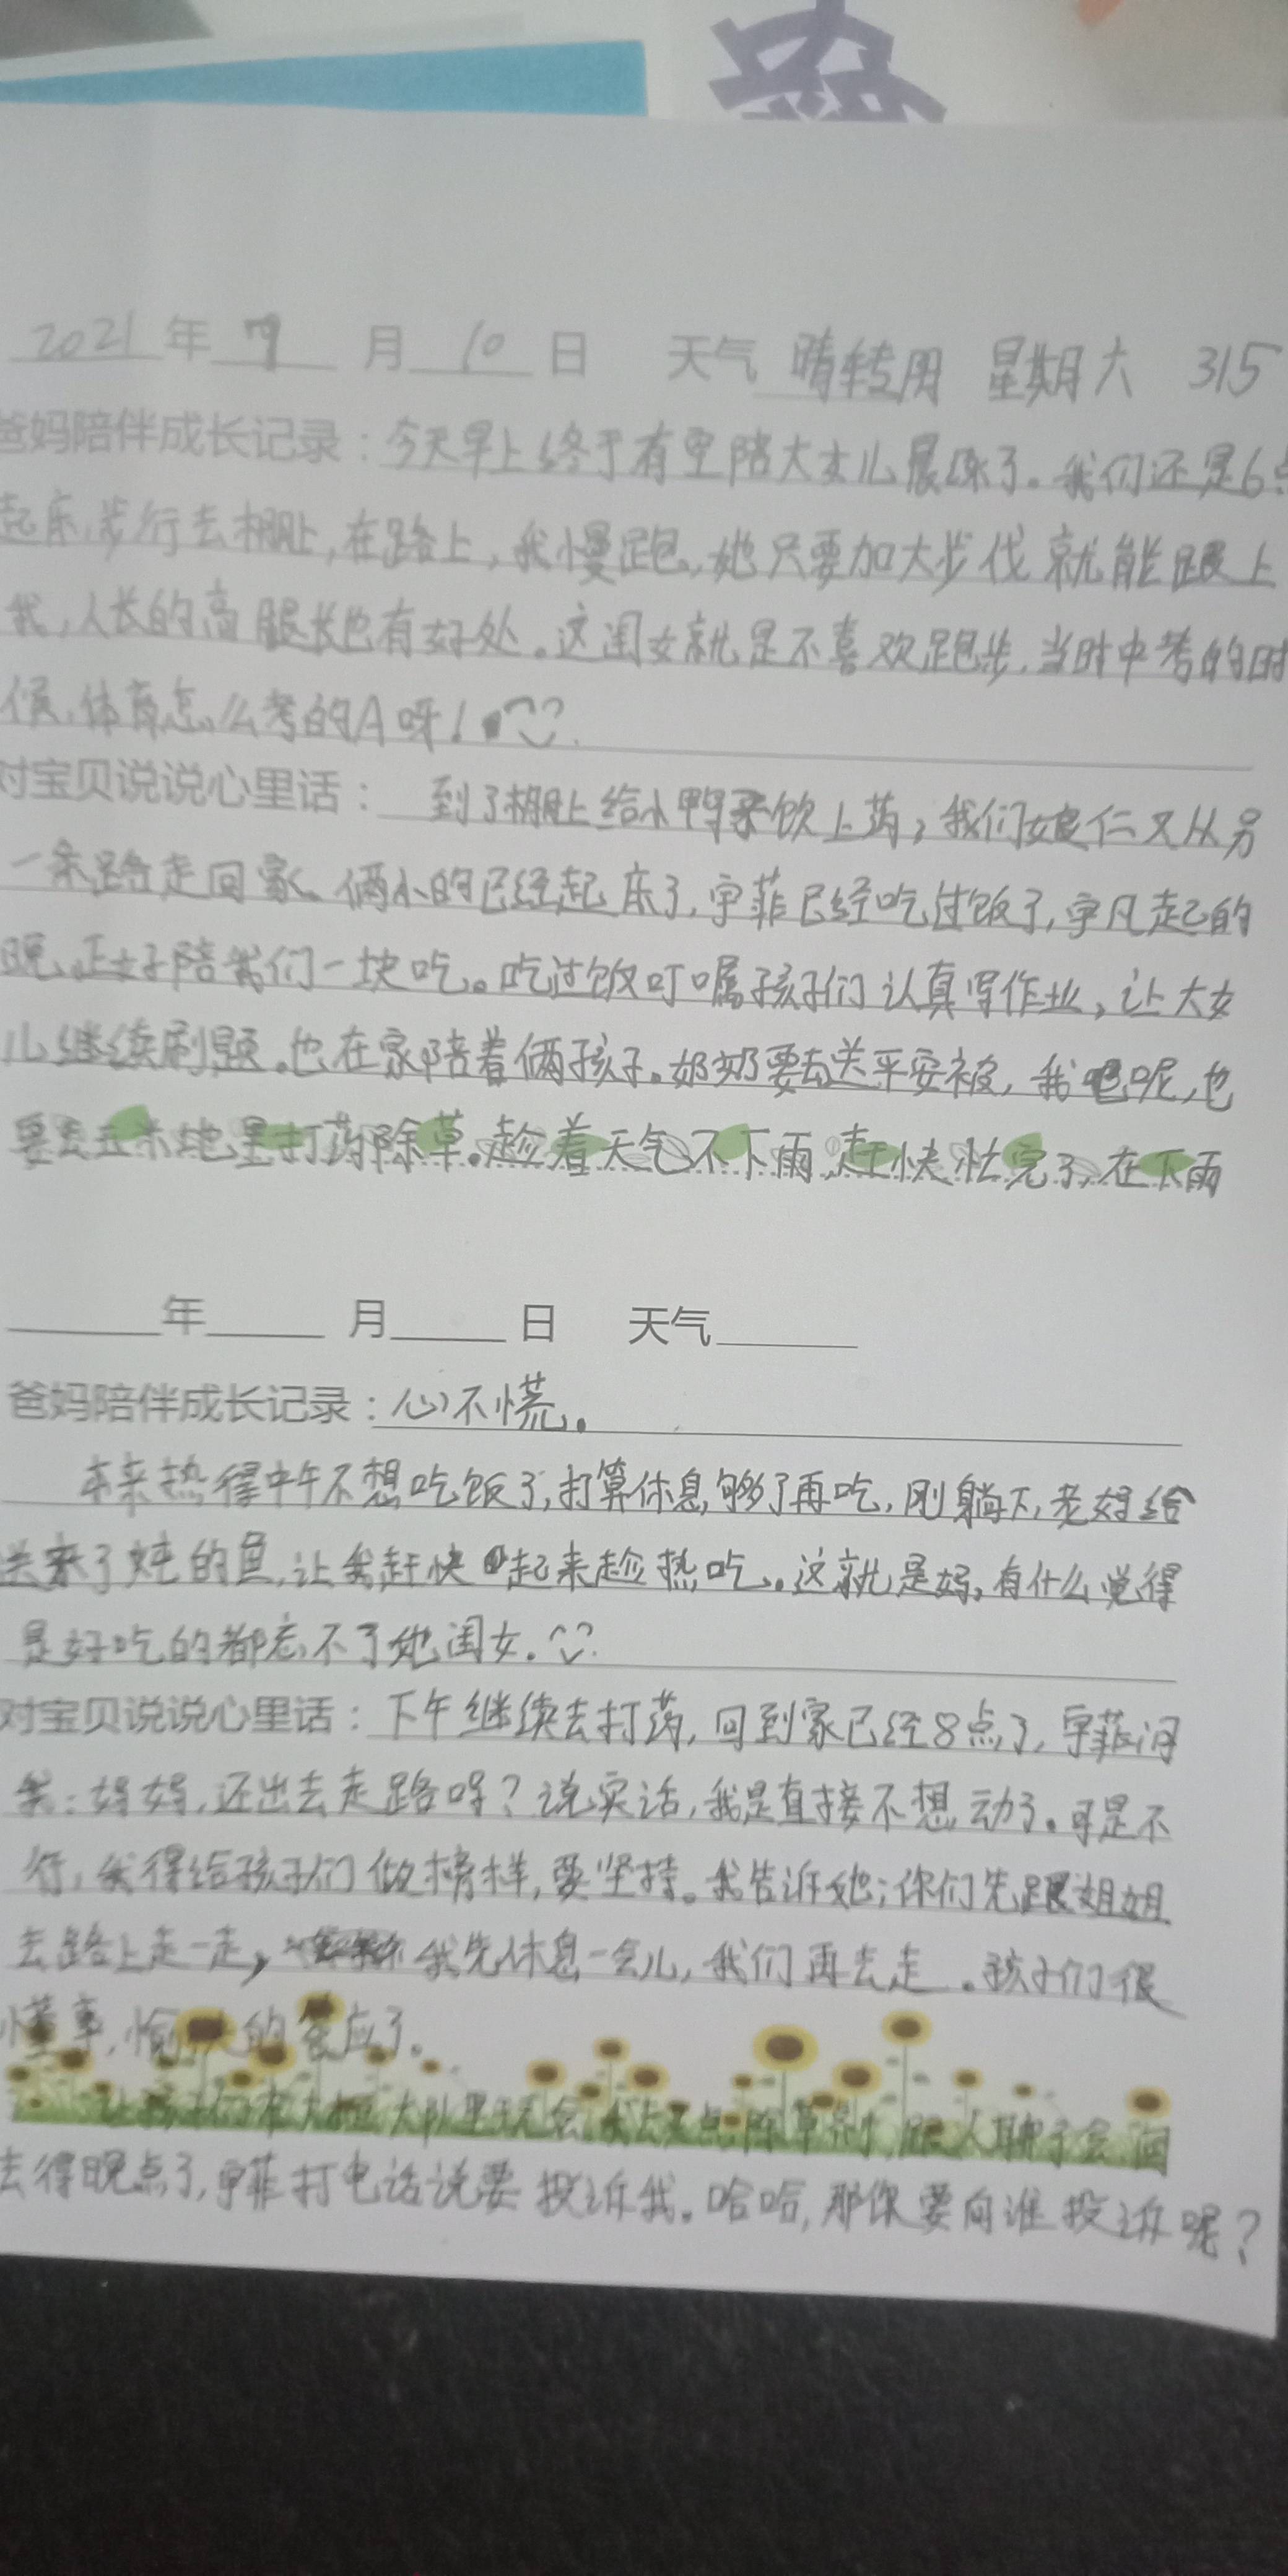 2021年 7 月 10 日 天气 晴转阴 星期六 315
爸妈陪伴成长记录：今天早上终于有空陪大女儿晨练了。我们还是6点
起床,步行去棚上,在路上,我慢跑,她只要加大步伐就能跟上
我,人长的高腿长也有好处。这闺女就是不喜欢跑步,当时中考的时
候,体育怎么考的A呀!
对宝贝说说心里话： 到了棚上给小鸭子饮上药,我们娘仨又从另
一条路走回家。俩小的已经起床了,宇菲已经吃过饭了,宇凡起的
晚,正好陪我们一块吃。吃过饭叮嘱孩子们认真写作业,让大女
儿继续刷题。也在家陪着俩孩子。奶奶要去送平安被,我呢,也
要去玉米地里打药除草。趁着天气不下雨,赶快忙完了,在下雨
年 月 日 天气
爸妈陪伴成长记录：心不慌。
本来热得中午不想吃饭了,打算休息够了再吃,刚躺下,老妈给
送来了炖的鱼,让我赶快起来趁热吃。这就是妈,有什么觉得
是好吃的都忘不了她闺女。
对宝贝说说心里话：下午继续去打药,回到家已经8点了,宇菲问
我:妈妈,还出去走路呀?说实话,我是直接不想动了。可是不
行,我得给孩子们做榜样,要坚持。我告诉她:你们先跟姐姐
去路上走一走,我先休息一会儿,我们再去走。孩子们很
懂事,愉快的答应了。
让孩子们在大队里玩会,我去买点除草剂,跟人聊了会,回
去得晚点了,宇菲打电话说要投诉我。哈哈,那你要向谁投诉呢?